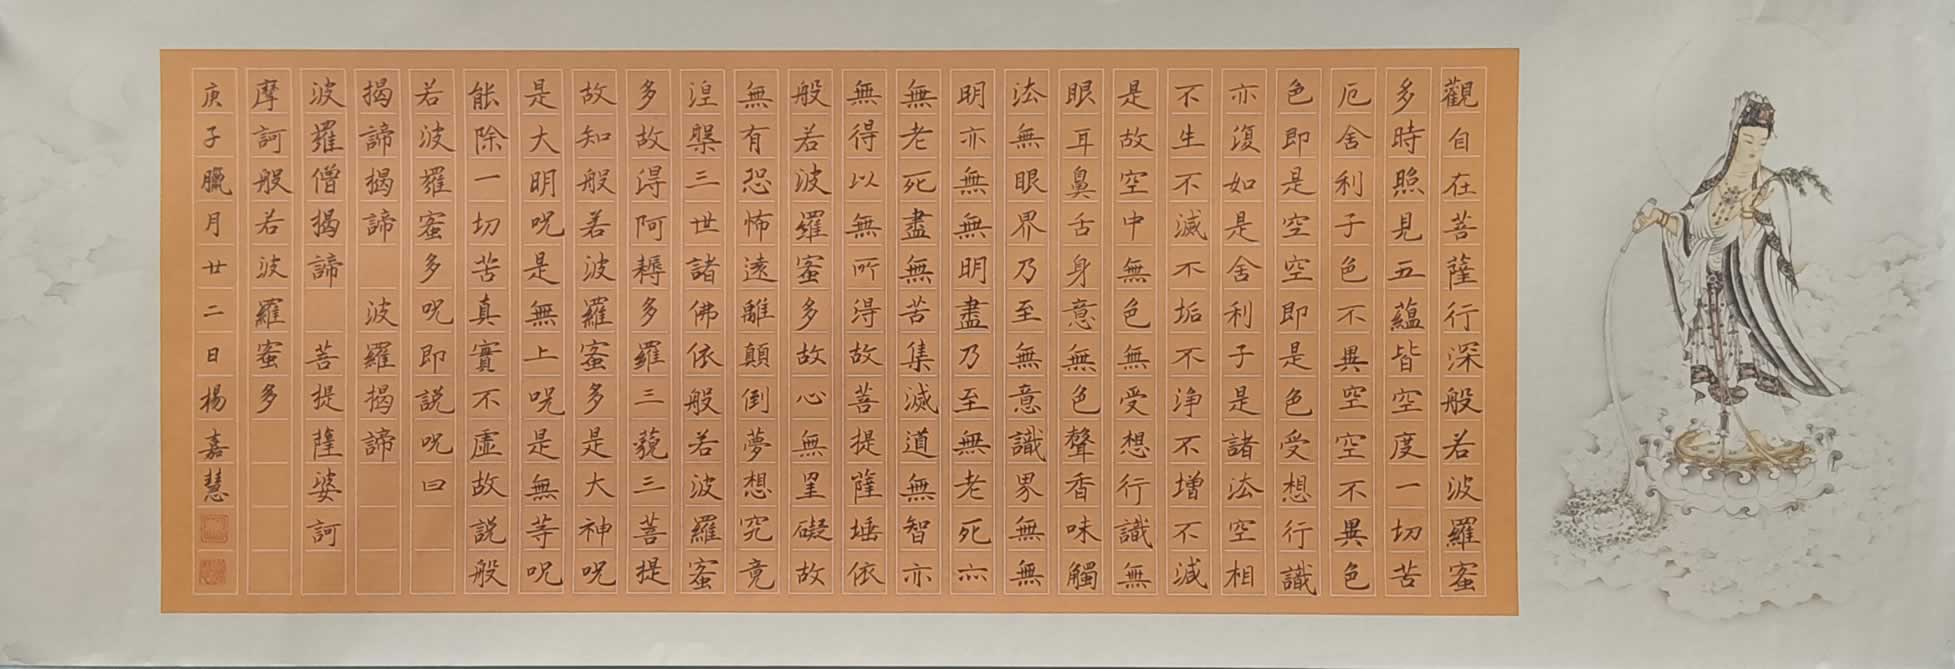 觀自在菩薩行深般若波羅蜜
多時照見五蘊皆空度一切苦
厄舍利子色不異空空不異色
色即是空空即是色受想行識
亦復如是舍利子是諸法空相
不生不滅不垢不淨不增不減
是故空中無色無受想行識無
眼耳鼻舌身意無色聲香味觸
法無眼界乃至無意識界無無
明亦無無明盡乃至無老死亦
無老死盡無苦集滅道無智亦
無得以無所得故菩提薩埵依
般若波羅蜜多故心無罣礙故
無有恐怖遠離顛倒夢想究竟
涅槃三世諸佛依般若波羅蜜
多故得阿耨多羅三藐三菩提
故知般若波羅蜜多是大神呪
是大明呪是無上呪是無等呪
能除一切苦真實不虛故説般
若波羅蜜多呪即説呪曰
揭諦揭諦 波羅揭諦
波羅僧揭諦 菩提薩婆訶
摩訶般若波羅蜜多
庚子臘月廿二日楊嘉慧